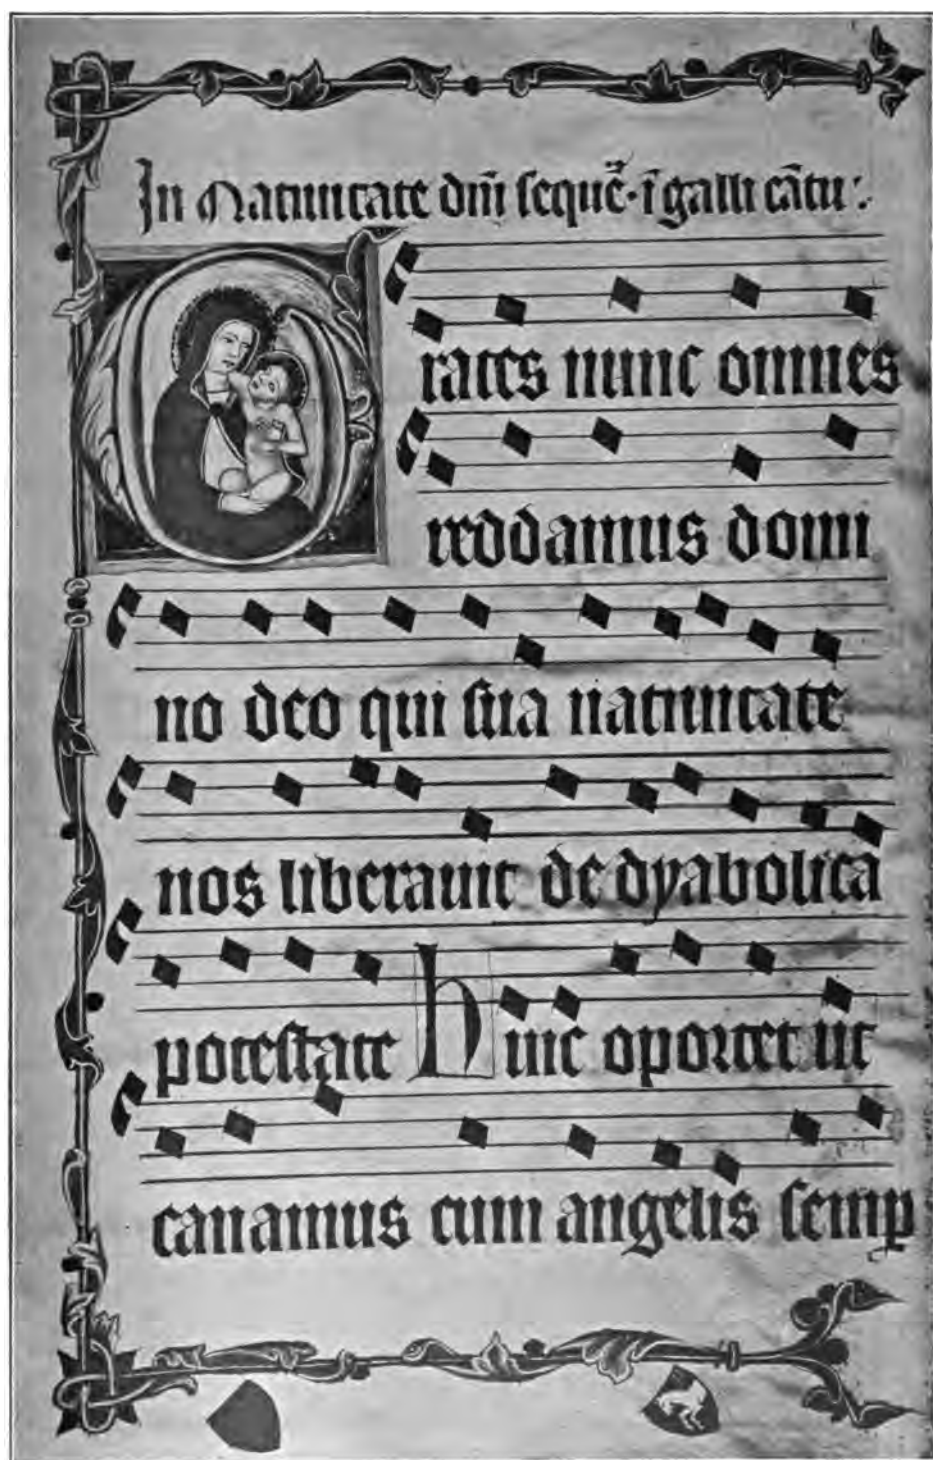 In Natiuitate dn̄i sequē̄·ī galli cātu:
Grates nunc omnes
reddamus domi
no deo qui sua natiuitate
nos liberauit de dyabolica
potestate Huic oportet ut
canamus cum angelis semꝑ